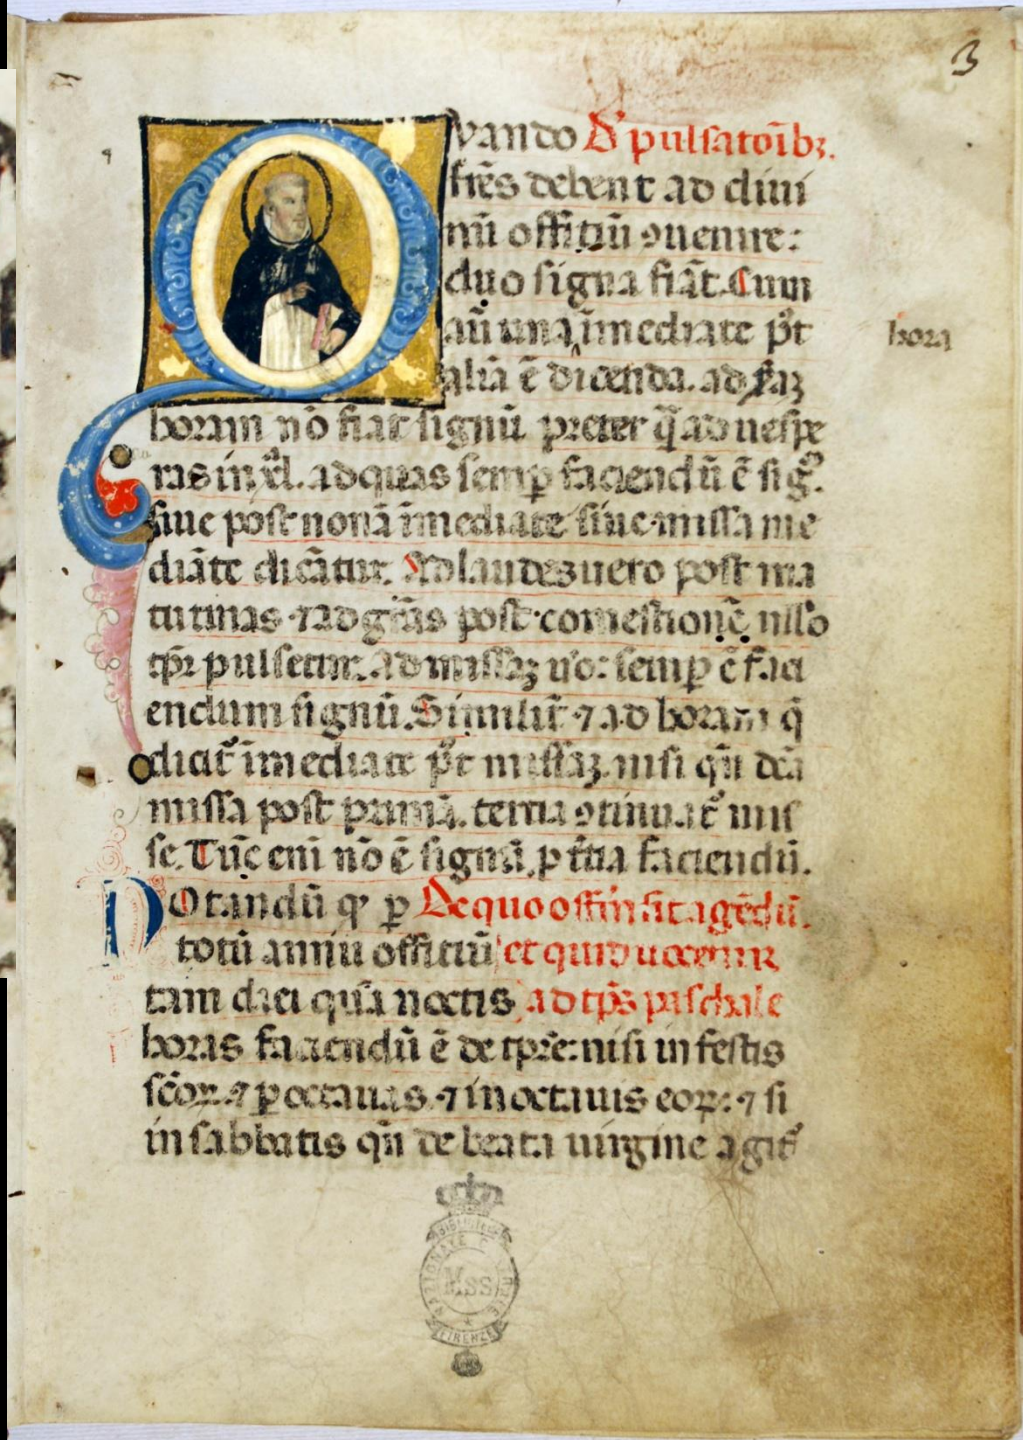 3
Quando De pulsatoibꝫ.
fr̄es debent ad diui
nū offitiū ꝯuenire:
duo signa fiāt. Cum
aū una īmediate pt̄
hora
alia ē dicenda. ad ſcaꝫ
horam nō fiat signū preter q̄ ad uespe
ras in xl. ad quas semp̲ faciendū ē siḡ.
siue post nonā īmediate siue missa me
diāte dicātur. Ad laudes uero post ma
tutinas ⁊ ad gr̄as post comestionē nllo
tp̄r pulsetur. Ad missaꝫ uo: semp̲ ē faci
endum signū. Similit̄ ⁊ ad horam q̄
dicit̄ īmediate pt̄ missaꝫ. nisi qn̄ dcā
missa post primā. tertia ꝯtinuat̄ mis
se. Tūc eni nō ē signū p̲ t̄tia faciendū.
Notandū ꝙ p̲ De quo offm̄ sit agēdū.
totū annū offitiū et quid uocetur
tam diei quā noctis ad tp̄s paschale
horas faciendū ē de tpr̄e: nisi in festis
sc̄oꝝ. ⁊ p̲ octauas. ⁊ in octauis eoꝝ: ⁊ si
in sabbatis qn̄ de beata uirgine agit̄
BIBLIOTECA
NAZIONALE CENTRALE
Mss
FIRENZE